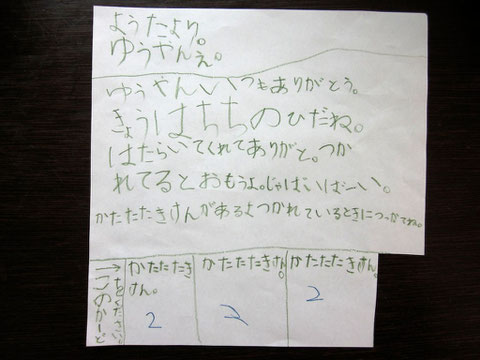 ようたより。
ゆうやんえ。
ゆうやんいつもありがとう。
きょうはちちのひだね。
はたらいてくれてありがと。つか
れてるとおもうよ。じゃばいばーい。
かたたたきけんがあるよつかれているときにつかてね。
かたたたき
けん。
2
かたたたきけん。
2
かたたたきけん。
2
このかーど